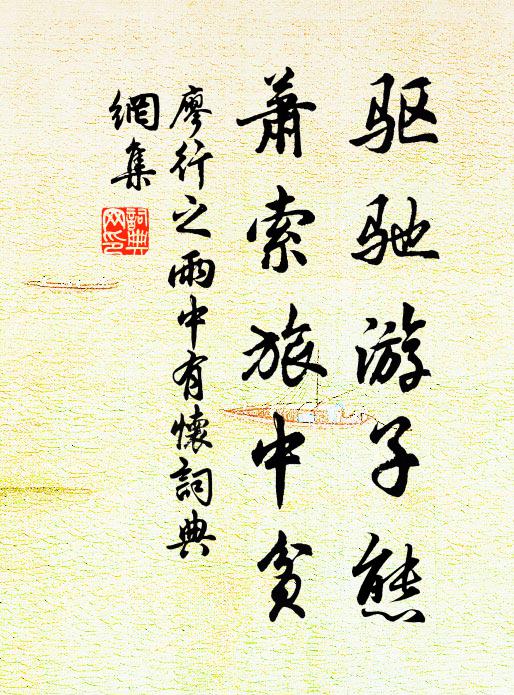 驱驰游子熊
萧索旅中贫
廖行之雨中有懷詞典
網集
詞典
网印